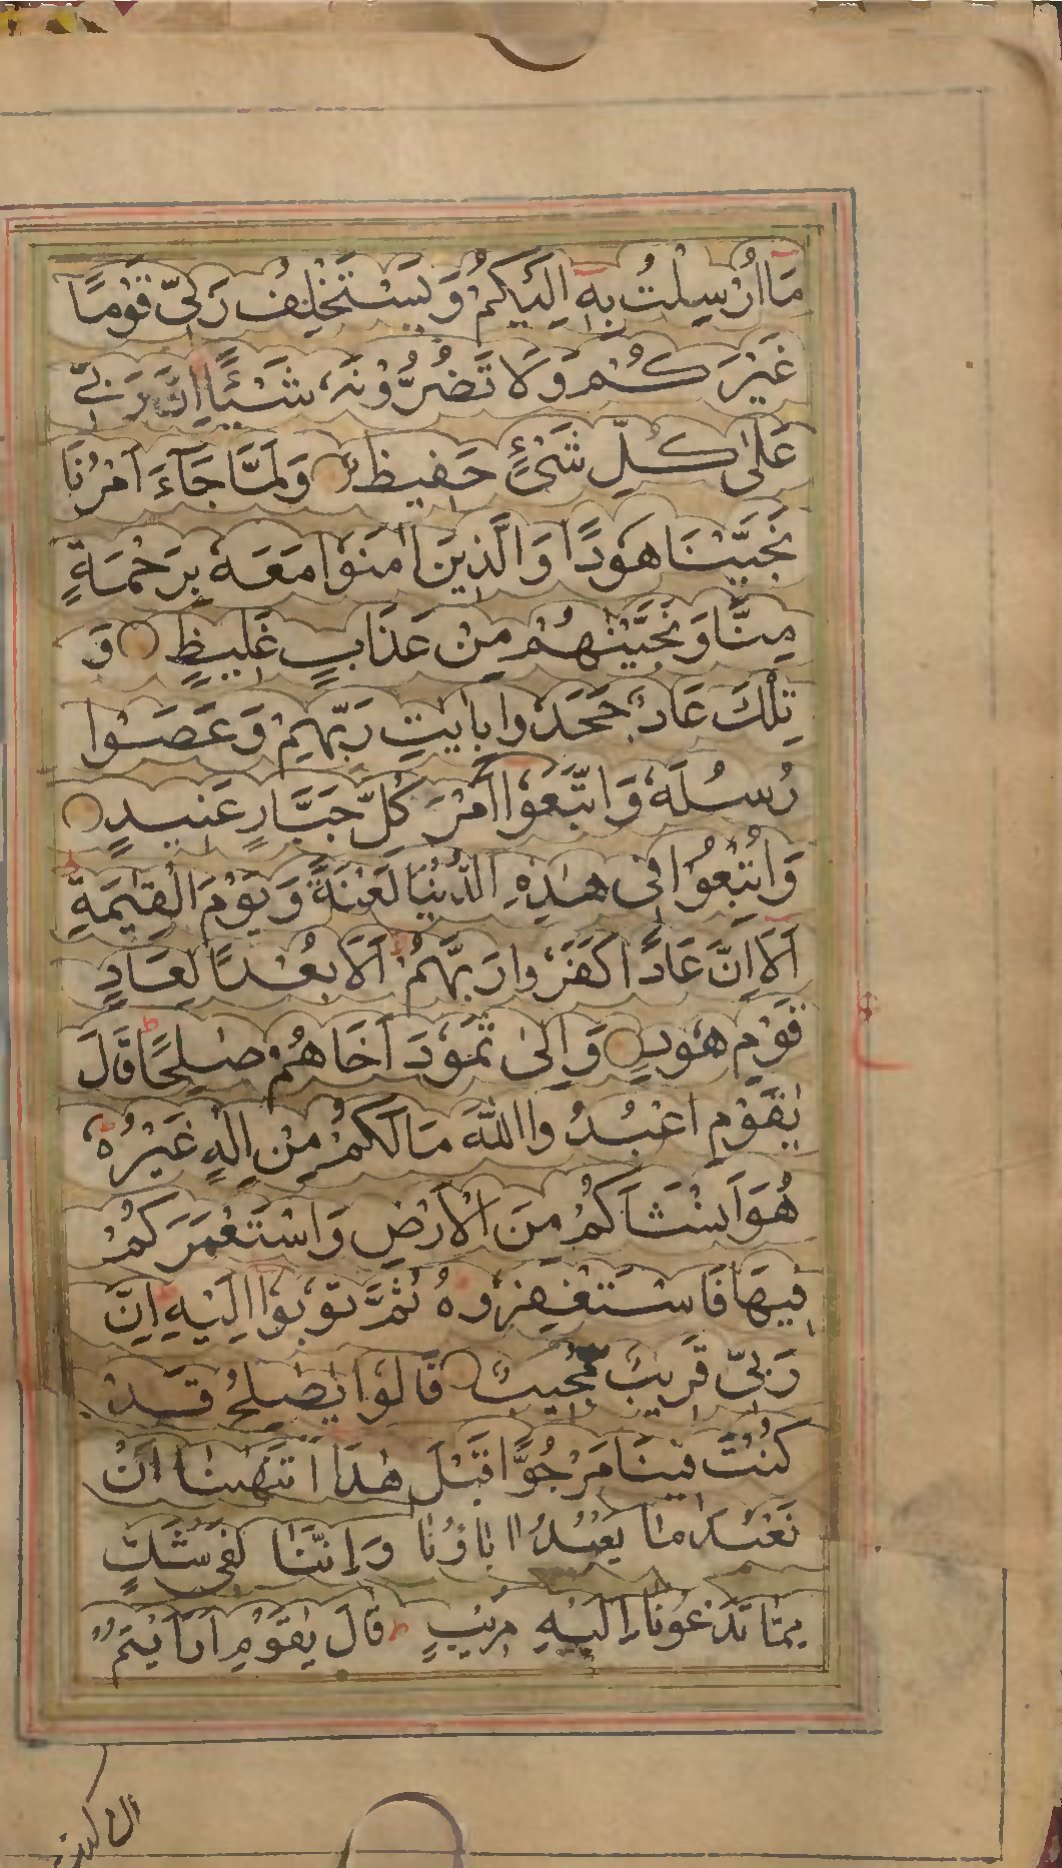 مَا اُرْسِلْتُ بِهٖ اِلَيْكُمْ وَ يَسْتَخْلِفُ رَبِّیْ قَوْمًا
غَيْرَكُمْ وَ لَا تَضُرُّوْنَهٗ شَيْـًٔا اِنَّ رَبِّیْ
عَلٰی كُلِّ شَیْءٍ حَفِيْظٌ وَ لَمَّا جَآءَ اَمْرُنَا
نَجَّيْنَا هُوْدًا وَّ الَّذِيْنَ اٰمَنُوْا مَعَهٗ بِرَحْمَةٍ
مِّنَّا وَ نَجَّيْنٰهُمْ مِّنْ عَذَابٍ غَلِيْظٍ وَ
تِلْكَ عَادٌ جَحَدُوْا بِاٰيٰتِ رَبِّهِمْ وَ عَصَوْا
رُسُلَهٗ وَ اتَّبَعُوْا اَمْرَ كُلِّ جَبَّارٍ عَنِيْدٍ
وَ اُتْبِعُوْا فِیْ هٰذِهِ الدُّنْيَا لَعْنَةً وَّ يَوْمَ الْقِيٰمَةِ
اَلَا اِنَّ عَادًا كَفَرُوْا رَبَّهُمْ اَلَا بُعْدًا لِّعَادٍ
قَوْمِ هُوْدٍ وَ اِلٰی ثَمُوْدَ اَخَاهُمْ صٰلِحًا قَالَ
يٰقَوْمِ اعْبُدُوا اللّٰهَ مَا لَكُمْ مِّنْ اِلٰهٍ غَيْرُهٗ
هُوَ اَنْشَاَكُمْ مِّنَ الْاَرْضِ وَ اسْتَعْمَرَكُمْ
فِيْهَا فَاسْتَغْفِرُوْهُ ثُمَّ تُوْبُوْا اِلَيْهِ اِنَّ
رَبِّیْ قَرِيْبٌ مُّجِيْبٌ قَالُوْا يٰصٰلِحُ قَدْ
كُنْتَ فِيْنَا مَرْجُوًّا قَبْلَ هٰذَا اَتَنْهٰىنَا اَنْ
نَّعْبُدَ مَا يَعْبُدُ اٰبَاؤُنَا وَ اِنَّنَا لَفِیْ شَكٍّ
مِّمَّا تَدْعُوْنَا اِلَيْهِ مُرِيْبٍ قَالَ يٰقَوْمِ اَرَاَيْتُمْ
ان كنت